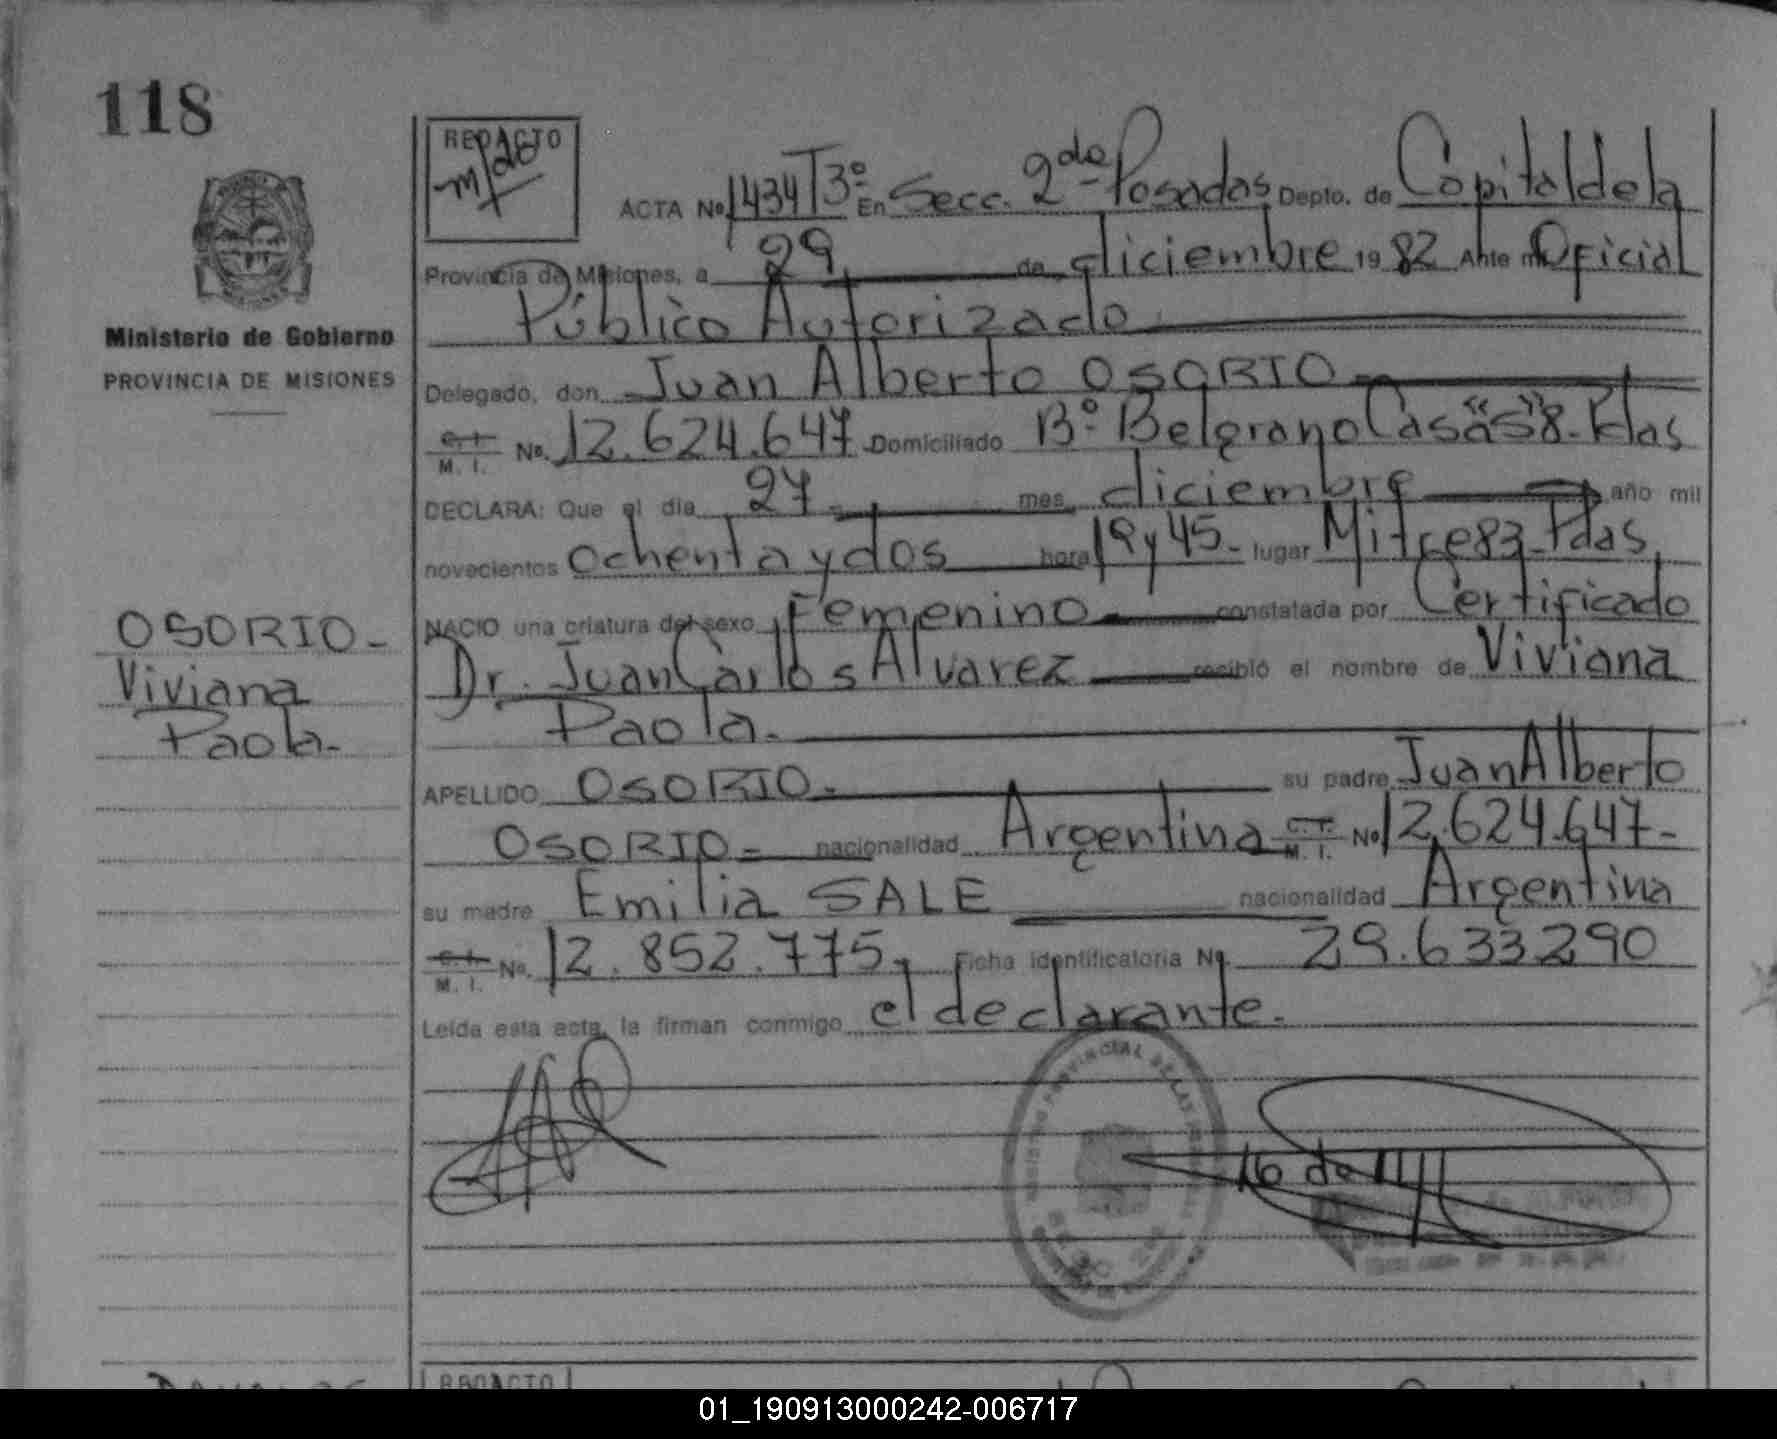 118
REDACTO
ACTA Nº 1434 T3º En Secc. 2da Posadas Depto. de Capital de la
Provincia de Misiones, a 29 de diciembre 1982 Ante mi Oficial
Público Autorizado
Ministerio de Gobierno
PROVINCIA DE MISIONES
Delegado, don Juan Alberto OSORIO
C. I. M. I. Nº. 12.624.647 Domiciliado Bº Belgrano Casa "S" 8 - Pdas
DECLARA: Que el dia 27 mes diciembre año mil
novecientos ochenta y dos hora 19 y 45 - lugar Mitre 83 - Pdas
NACIO una criatura del sexo Femenino constatada por Certificado
Dr. Juan Carlos Alvarez recibió el nombre de Viviana
Paola.
OSORIO -
Viviana
Paola -
APELLIDO OSORIO - su padre Juan Alberto
OSORIO - nacionalidad Argentina C. I. M. I. Nº 12.624.647 -
su madre Emilia SALE nacionalidad Argentina
C. I. M. I. Nº. 12.852.775 - Ficha identificatoria Nº 29.633.290
Leída esta acta, la firman conmigo el declarante.
REDACTO
01_190913000242-006717